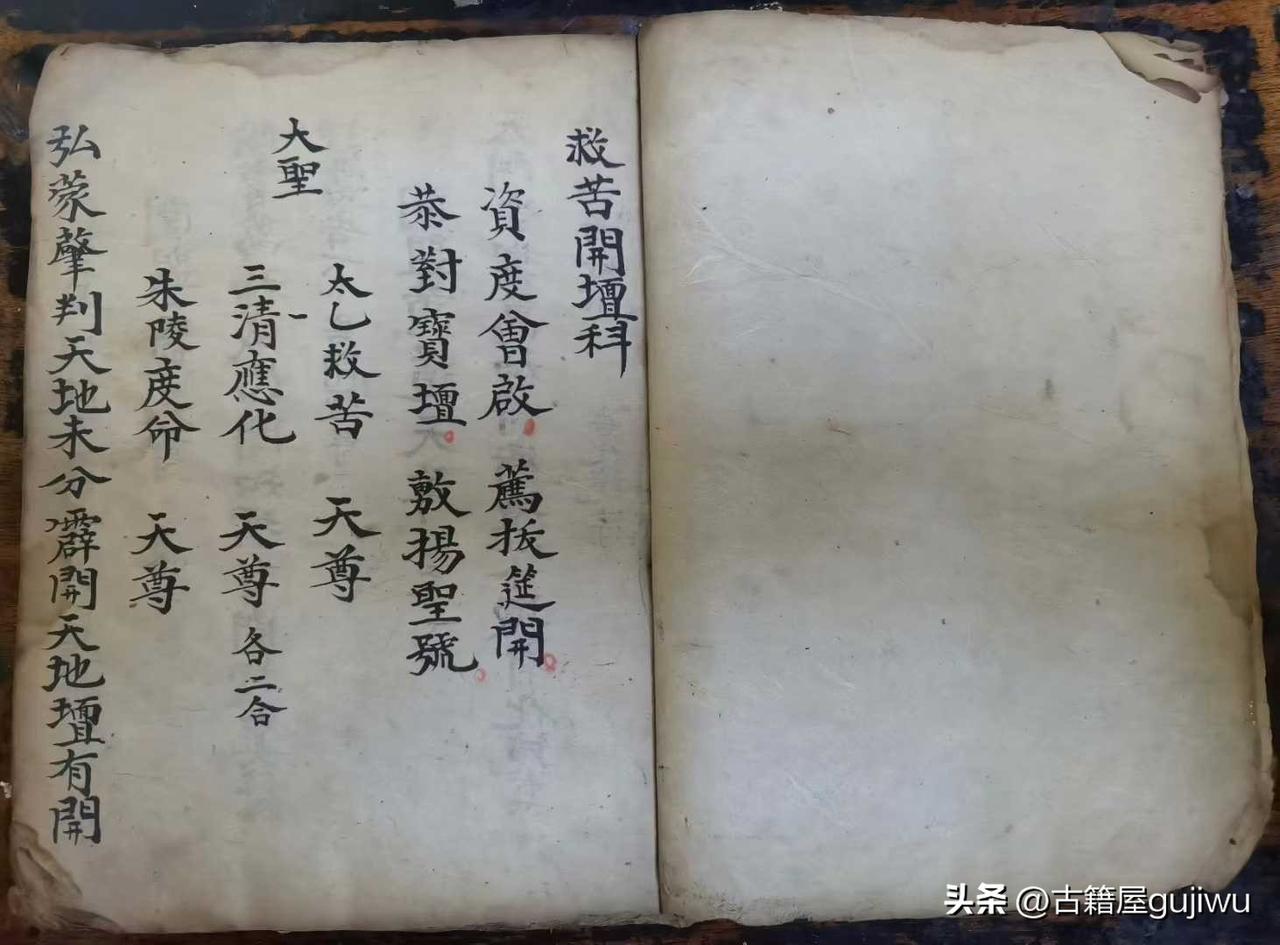 救苦開壇科
資度會啟。薦拔筵開。
恭對寶壇。敷揚聖號。
大聖
太乙救苦 天尊
三清應化 天尊 各二合
朱陵度命 天尊
弘蒙肇判天地未分霹開天地壇有開
头条 @古籍屋gujiwu